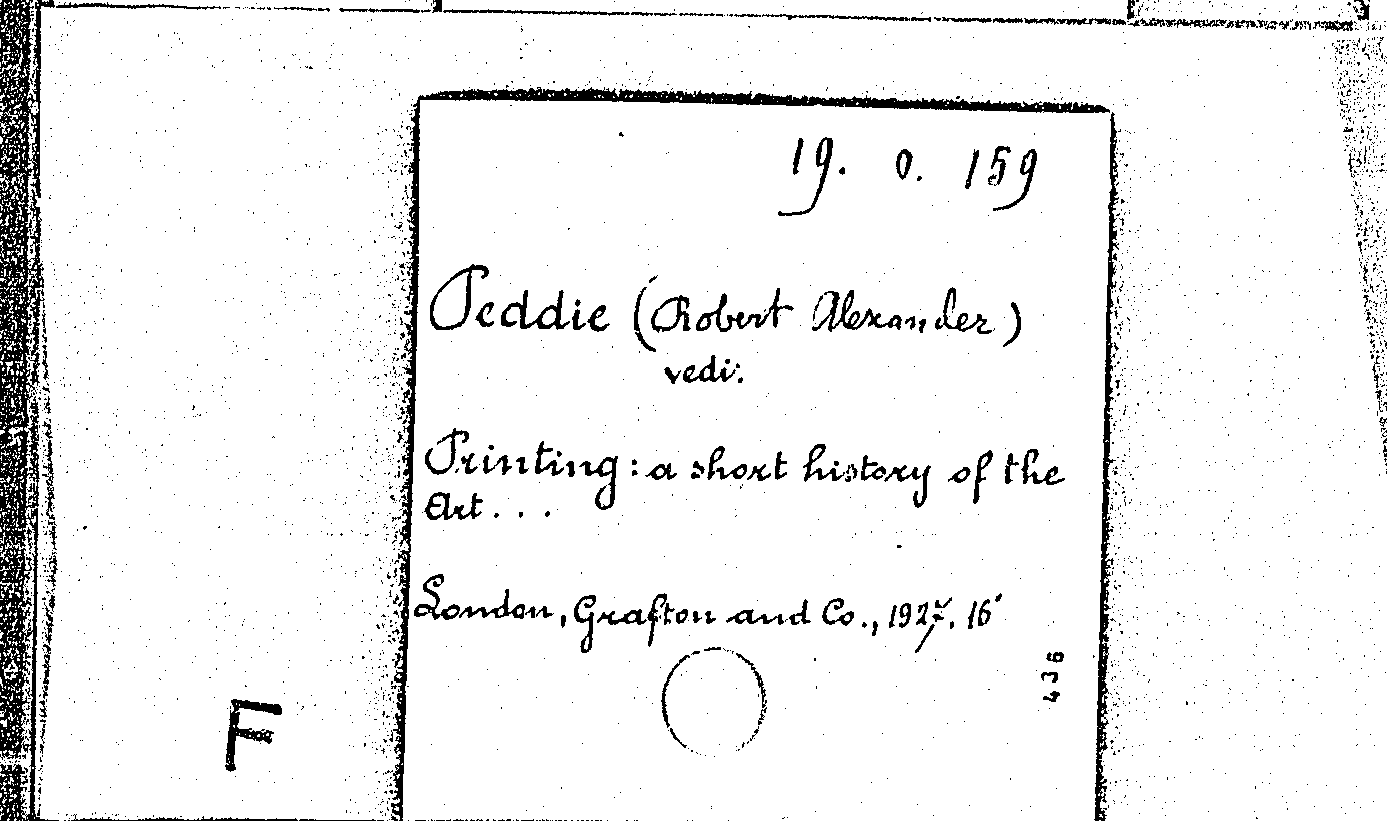 19. 0. 159
Peddie (Robert Alexander)
vedi:
Printing: a short history of the
Art...
London, Grafton and Co., 1927. 16°
436
F